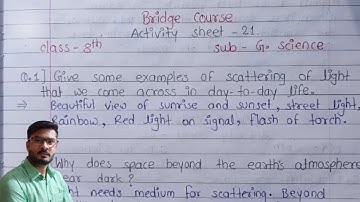 Bridge Course
Activity sheet - 21.
class - 8th    sub - G. science
Q.1] Give some examples of scattering of light
that we come across in day-to-day life.
⇒ Beautiful view of sunrise and sunset, street light,
Rainbow, Red light on signal, flash of torch.
Why does space beyond the earth's atmosphere
ear dark?
ht needs medium for scattering. Beyond